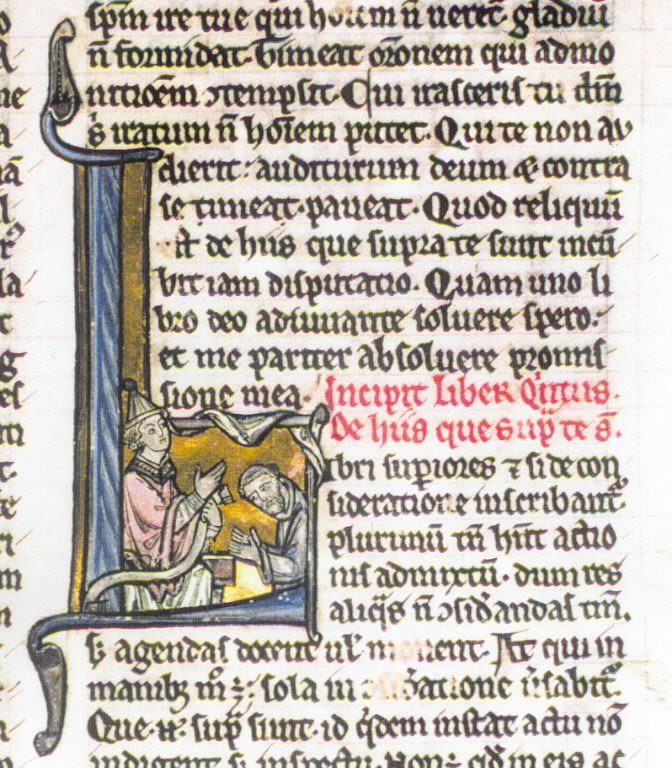 sp̄m ire tue qui hoīem n̄ veret᷑ gladiū
n̄ formidat. Timeat or̄onem qui admo
nitiōem ɔtempsit. Cui irasceris tu dm̄
s̄ iratum n̄ hoīem putet. Qui te non au
dierit: auditurum deum & contra
se timeat. paveat. Quod reliquū
ē̄t de hiis que supra te sunt incū
bit iam disputatio. Quam uno li
bro deo adiuuante soluere spero:
et me pariter absoluere promis
sione mea. Incipit Liber Qi̇ntus.
De hiis que sup̄ te s̄.
Libri sup̄iores ⁊ si de con
sideratione inscribant᷑.
plurimū tn̄ hn̄t actio
nis admixtū. dum res
aliq̄s n̄ ɔsid᷑andas tm̄.
s̄ agendas docent ul̄ monent. At qui in
manibꝫ m̊ ē: sola in ᷑atione ûsabit᷑.
Que.n̄. sup̄ sunt. id q̇dem instat actu nō
indigent s̄ inspectu. Non ē qd̄ in eis ac